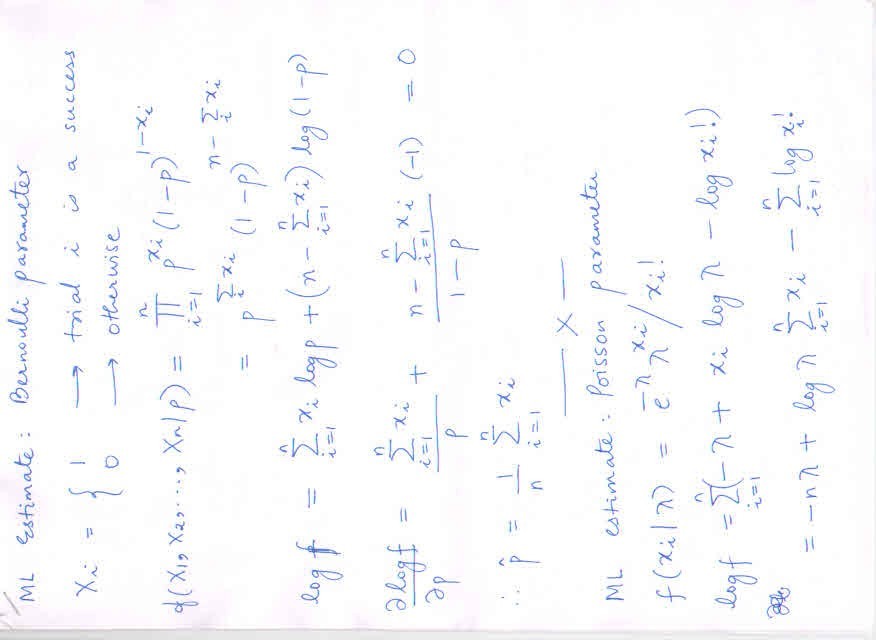 ML Estimate: Bernoulli parameter
Xi = { 1 → trial i is a success
0 → otherwise
f(X1, X2, ..., Xn|p) = ∏_{i=1}^{n} p^{xi} (1-p)^{1-xi}
= p^{∑_i xi} (1-p)^{n - ∑_i xi}
log f = ∑_{i=1}^{n} xi log p + (n - ∑_{i=1}^{n} xi) log (1-p)
∂ log f / ∂p = (∑_{i=1}^{n} xi) / p + (n - ∑_{i=1}^{n} xi) / (1-p) (-1) = 0
∴ p̂ = 1/n ∑_{i=1}^{n} xi
— X —
ML estimate: Poisson parameter
f(xi|λ) = e^{-λ} λ^{xi} / xi!
log f = ∑_{i=1}^{n} (-λ + xi log λ - log xi!)
= -nλ + log λ ∑_{i=1}^{n} xi - ∑_{i=1}^{n} log xi!